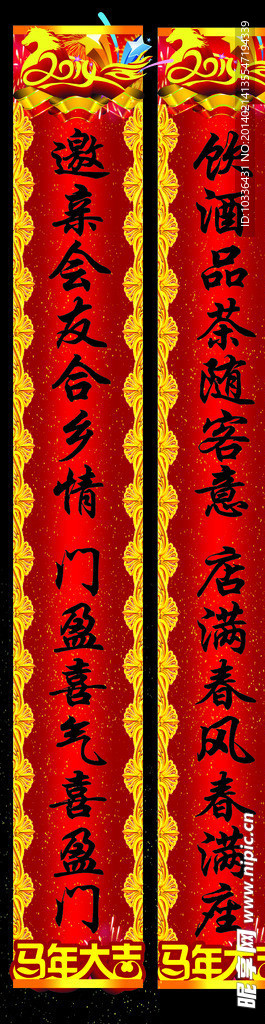 2014
饮酒品茶随客意 店满春风春满座
马年大吉
2014
邀亲会友合乡情 门盈喜气喜盈门
马年大吉
ID:10336431 NO:20140214139547194339
昵享网 www.nipic.cn